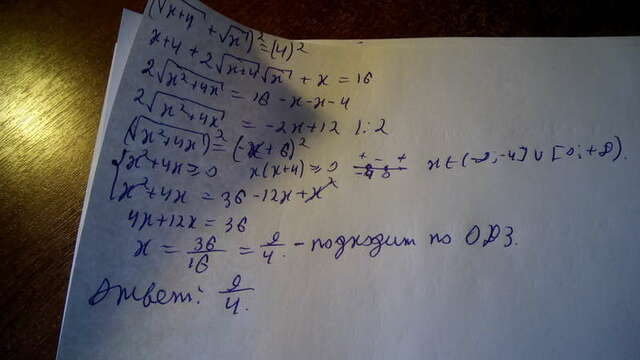 (√x+4 + √x)² = (4)²
x+4 + 2√x+4 √x + x = 16
2√x²+4x = 16 - x - x - 4
2√x²+4x = -2x+12 |:2
(√x²+4x)² = (-x+6)²
x²+4x ≥ 0 x(x+4) ≥ 0 + - + -4 0 x ∈ (-∞; -4] ∪ [0; +∞).
x²+4x = 36 - 12x + x²
4x+12x = 36
x = 36/16 = 9/4 - подходит по ОДЗ.
Ответ: 9/4.